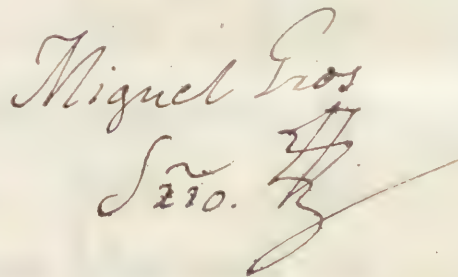 Miguel Gros
Srio.